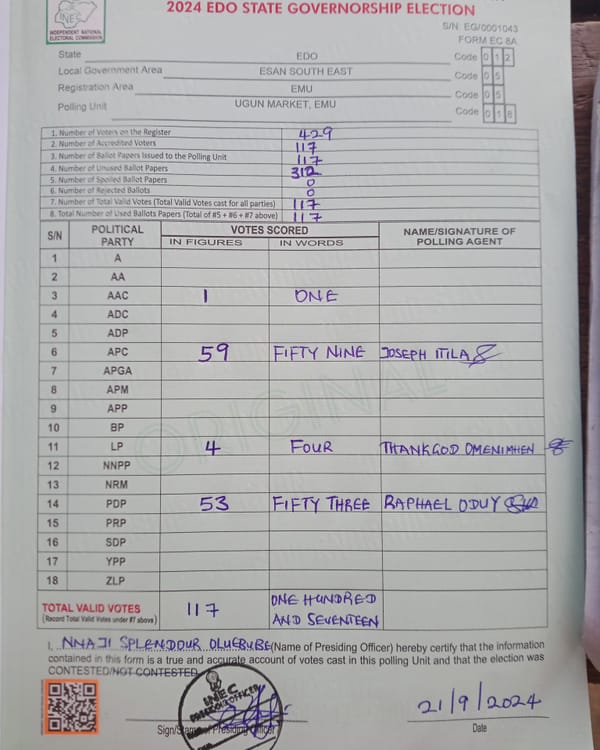 2024 EDO STATE GOVERNORSHIP ELECTION
INEC
INDEPENDENT NATIONAL
ELECTORAL COMMISSION
S/N: EG/0001043
FORM EC 8A
State EDO Code 0 1 2
Local Government Area ESAN SOUTH EAST Code 0 5
Registration Area EMU Code 0 5
Polling Unit UGUN MARKET, EMU Code 0 1 8
1. Number of Voters on the Register 429
2. Number of Accredited Voters 117
3. Number of Ballot Papers Issued to the Polling Unit 117
4. Number of Unused Ballot Papers 312
5. Number of Spoiled Ballot Papers 0
6. Number of Rejected Ballots 0
7. Number of Total Valid Votes (Total Valid Votes cast for all parties) 117
8. Total Number of Used Ballots Papers (Total of #5 + #6 + #7 above) 117
S/N POLITICAL PARTY VOTES SCORED NAME/SIGNATURE OF POLLING AGENT
IN FIGURES IN WORDS
1 A
2 AA
3 AAC 1 ONE
4 ADC
5 ADP
6 APC 59 FIFTY NINE JOSEPH ITILA
7 APGA
8 APM
9 APP
10 BP
11 LP 4 FOUR THANKGOD OMENIMHEN
12 NNPP
13 NRM
14 PDP 53 FIFTY THREE RAPHAEL ODUY
15 PRP
16 SDP
17 YPP
18 ZLP
ORIGINAL
TOTAL VALID VOTES 117 ONE HUNDRED
(Record Total Valid Votes under #7 above) AND SEVENTEEN
I, NNAJI SPLENDOUR OLUEBUBE (Name of Presiding Officer) hereby certify that the information
contained in this form is a true and accurate account of votes cast in this polling Unit and that the election was
CONTESTED/NOT CONTESTED
INEC
PRESIDING OFFICER
21/9/2024
Sign/Stamp of Presiding Officer Date